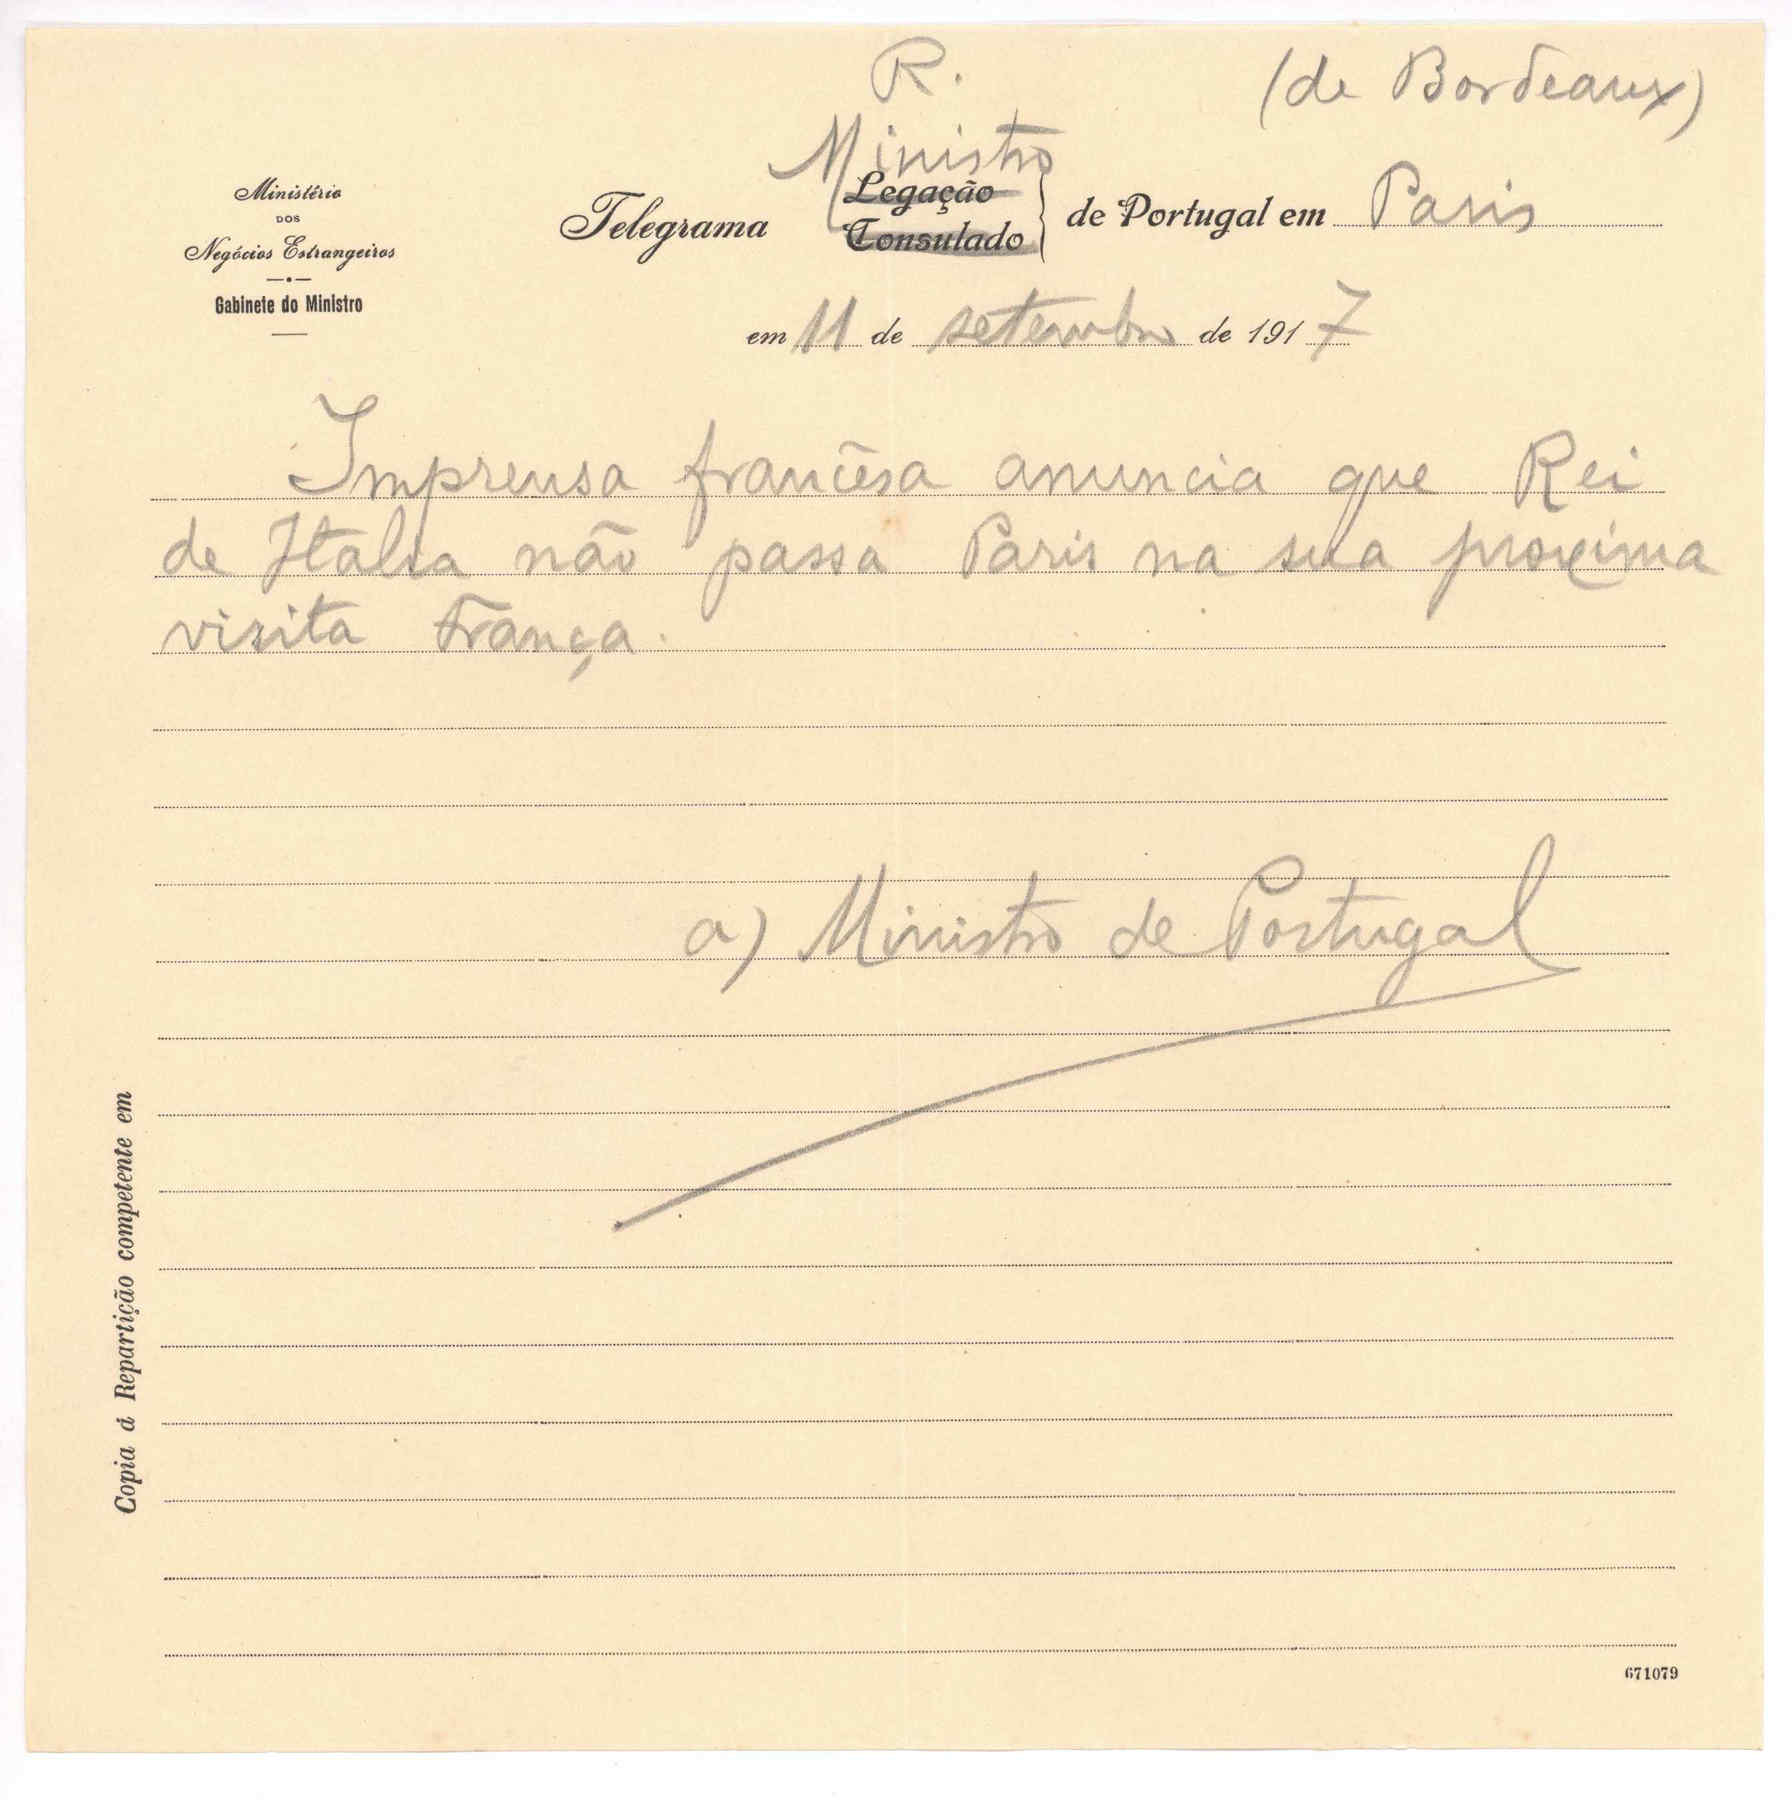 R.
(de Bordeaux)
Ministro
Ministério
DOS
Negócios Estrangeiros
Gabinete do Ministro
Telegrama Legação Consulado de Portugal em Paris
em 11 de setembro de 1917
Imprensa francêsa anuncia que Rei
de Italia não passa Paris na sua proxima
visita França.
a) Ministro de Portugal
Copia á Repartição competente em
671079